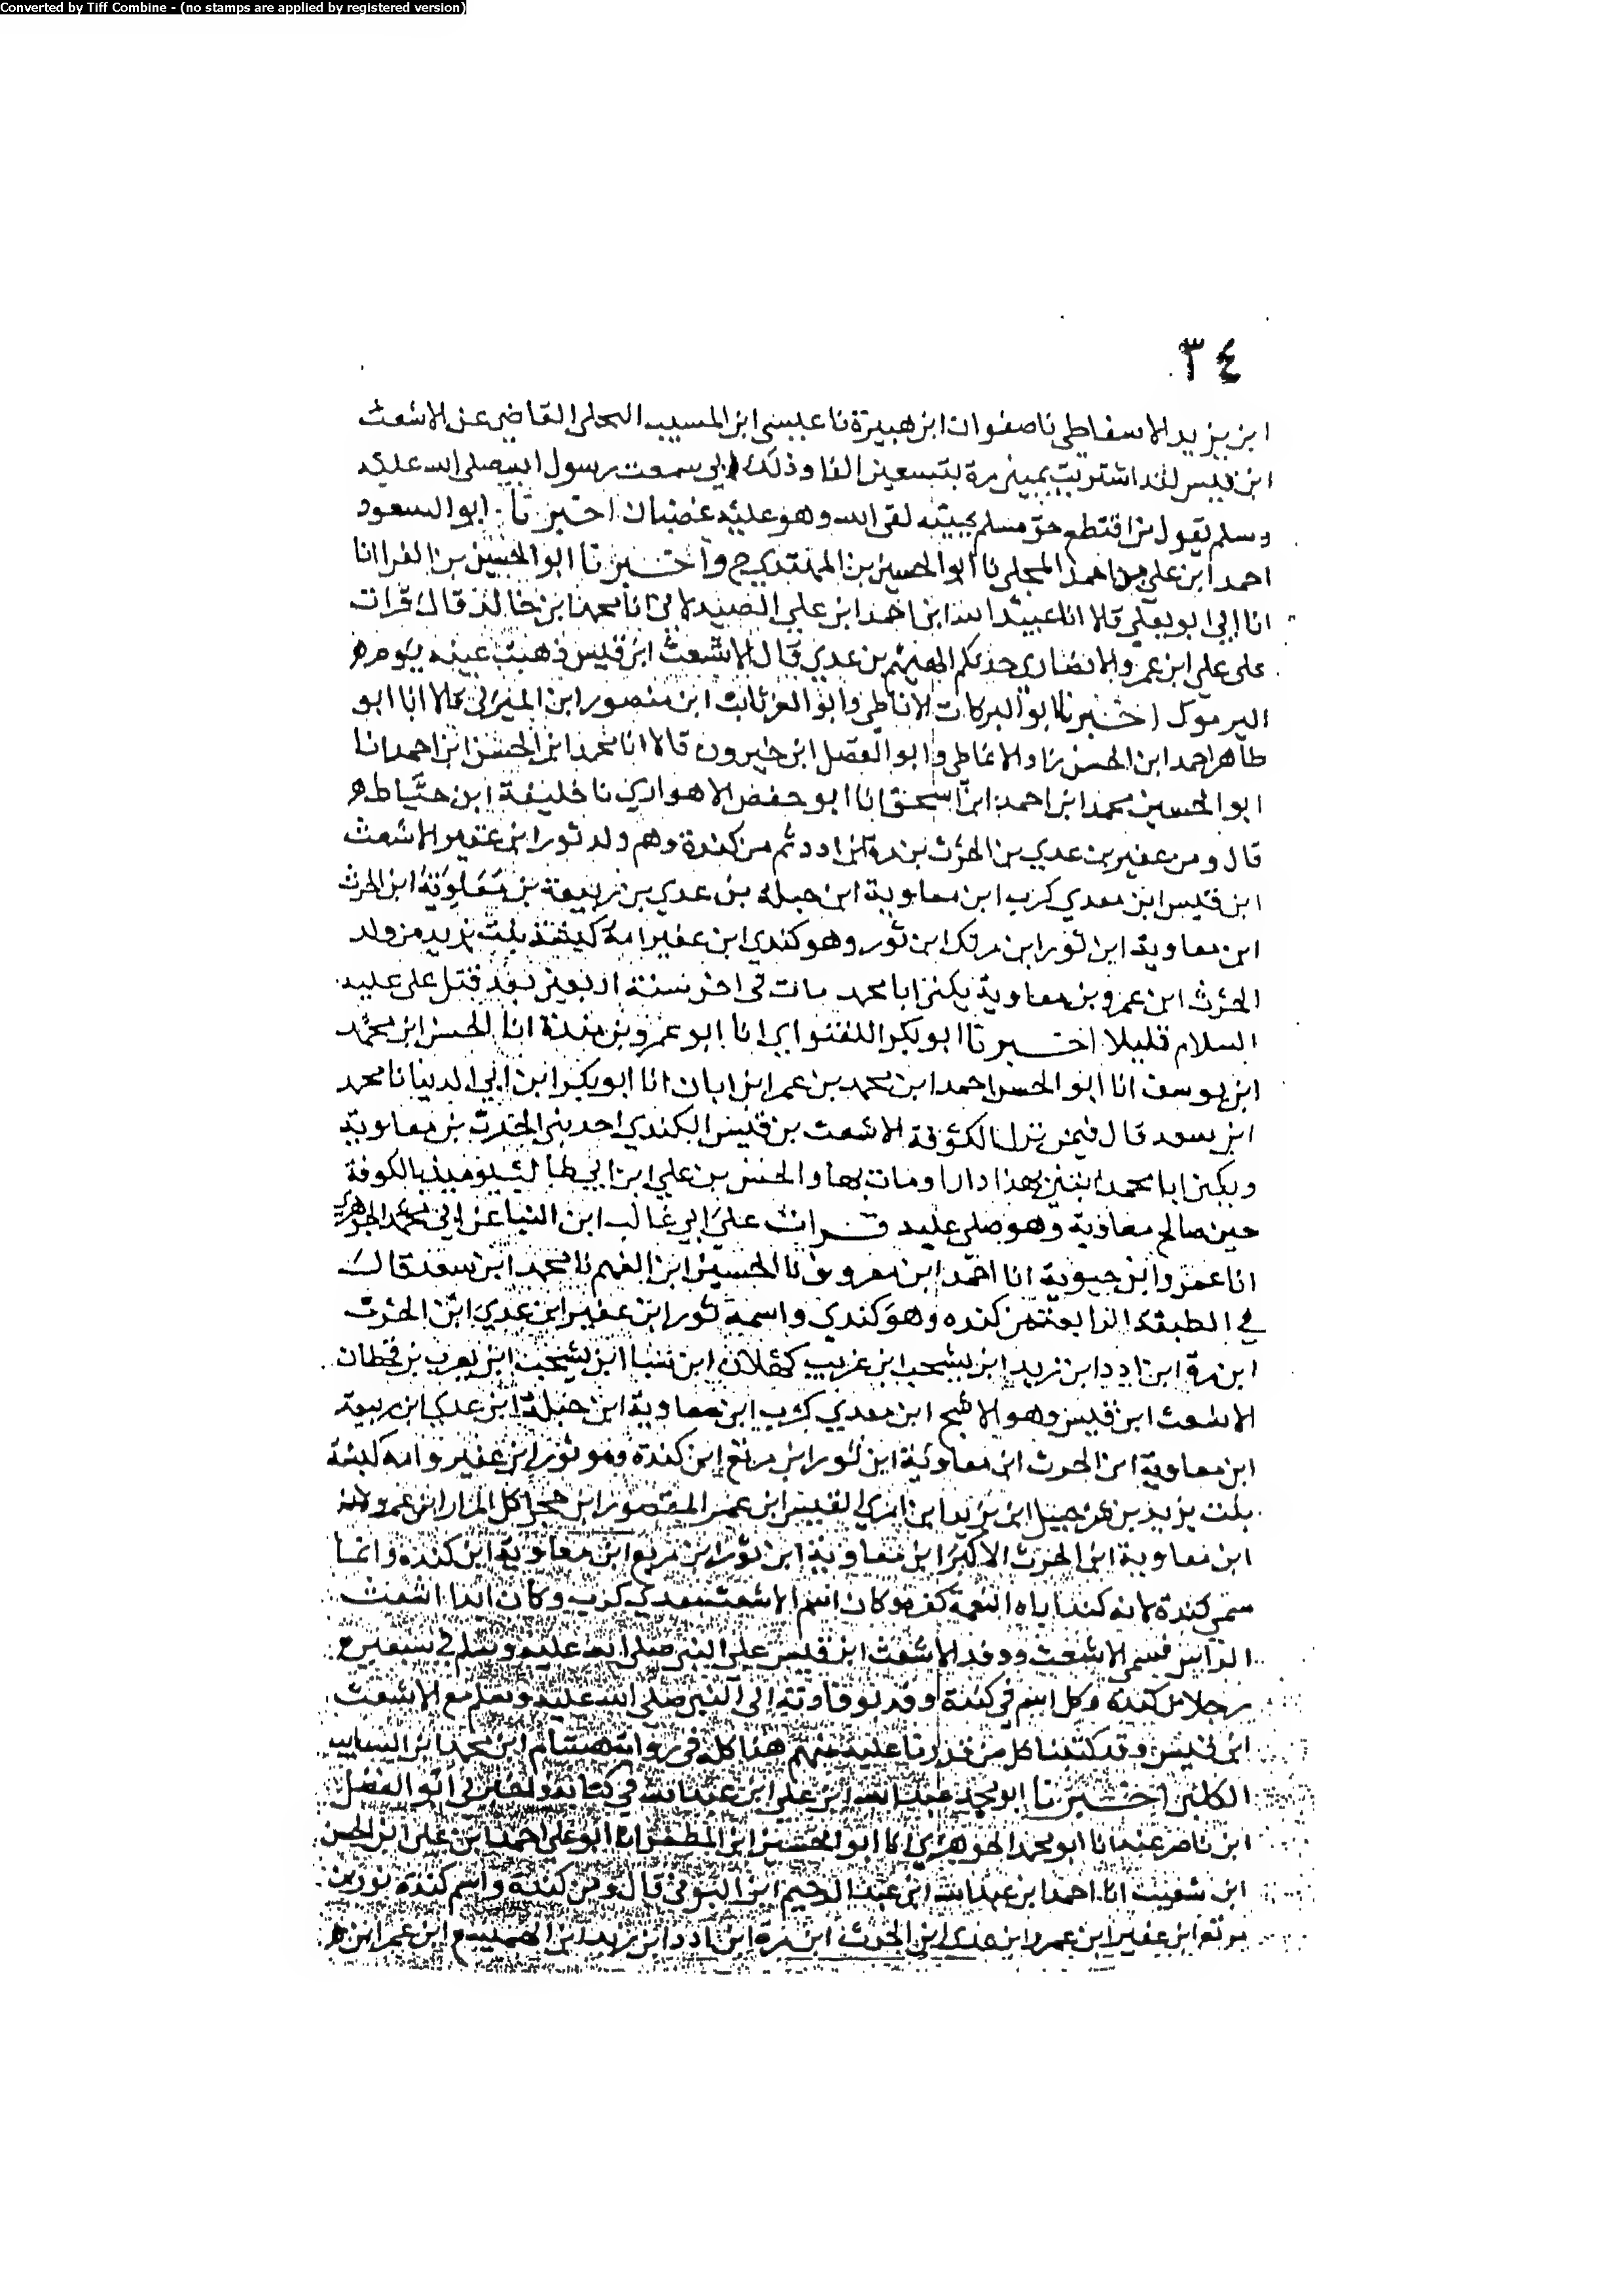 Converted by Tiff Combine - (no stamps are applied by registered version)
٣٤
ابن يزيد الاسفاطي نا صفوان ابن هبيرة نا عيسى ابن المسيب البجلي القاضي عن الاشعث
ابن قيس لقد اشتريت يميني مرة بتسعين الفا وذلك اني سمعت رسول الله صلى الله عليه
وسلم يقول من اقتطع حق مسلم بيمينه لقي الله وهو عليه غضبان اخبرنا ابو السعود
احمد ابن علي بن احمد المجلي نا ابو الحسين بن المهتدي ح واخبرنا ابو الحسين بن الفرا انا
انا ابي ابو يعلى قالا انا عبيد الله ابن احمد ابن علي الصيدلاني انا محمد ابن خالد قال قرات
على علي ابن عمرو الانصاري حدثكم الهيثم بن عدي قال الاشعث ابن قيس ذهبت عينه يوم
اليرموك اخبرنا ابو البركات الانماطي وابو العز ثابت ابن منصور ابن المنزلي قالا انا ابو
طاهر احمد ابن الحسن زاد الانماطي وابو الفضل ابن خيرون قالا انا محمد ابن الحسن ابن احمد انا
ابو الحسين محمد ابن احمد ابن اسحق انا ابو حفص الاهوازي نا خليفة ابن خياط
قال ومن عفير بن عدي بن الحرث بن مرة بن ادد ثم من كندة وهم ولد ثور ابن عفير الاشعث
ابن قيس ابن معدي كرب ابن معاوية ابن جبلة بن عدي بن ربيعة بن معاوية ابن الحرث
ابن معاوية ابن ثور ابن مرتك ابن ثور وهو كندي ابن عفير امه كبشة بنت يزيد من ولد
الحرث ابن عمرو بن معاوية يكنى ابا محمد مات في اخر سنة اربعين بعد قتل علي عليه
السلام قليلا اخبرنا ابو بكر اللفتواني انا ابو عمرو بن مندة انا الحسن ابن محمد
ابن يوسف انا ابو الحسن احمد ابن محمد بن عمر ابن ابان انا ابو بكر ابن ابي الدنيا نا محمد
ابن سعد قال فيمن نزل الكوفة الاشعث بن قيس الكندي احد بني الحرث بن معاوية
ويكنى ابا محمد ابتنى بها دارا ومات بها والحسن بن علي ابن ابي طالب يومئذ بالكوفة
حين صالح معاوية وهو صلى عليه قرات على ابي غالب ابن البنا عن ابي محمد الجوهري
انا عمرو ابن حيوية انا احمد ابن معروف نا الحسين ابن الفهم نا محمد ابن سعد قال
في الطبقة الرابعة من كنده وهو كندي واسمه ثور ابن عفير ابن عدي ابن الحرث
ابن مرة ابن ادد ابن زيد ابن يشجب ابن عريب كهلان ابن سبا ابن يشجب ابن يعرب بن قحطان
الاشعث ابن قيس وهو الاشج ابن معدي كرب ابن معاوية ابن جبلة ابن عدي ابن ربيعة
ابن معاوية ابن الحرث ابن معاوية ابن ثور ابن مرتع ابن كندة وهو ثور ابن عفير وامه كبشة
بنت يزيد بن شرحبيل ابن يزيد ابن امري القيس ابن عمر المقصور ابن حجر اكل المرار ابن عمرو
ابن معاوية ابن الحرث الاكبر ابن معاوية ابن ثور ابن مرتع ابن معاوية ابن كنده وانما
سمي كندة لانه كند اباه النعمة كفره وكان اسم الاشعث معدي كرب وكان ابدا اشعث
الراس فسمي الاشعث ووفد الاشعث ابن قيس على النبي صلى الله عليه وسلم في سبعين
رجلا من كنده وكل اسم في كندة وفد لوفادته الى النبي صلى الله عليه وسلم مع الاشعث
ابن قيس وقد كتبنا كل من قدرنا عليه منهم هذا كله في رواية هشام ابن محمد ابن السايب
الكلبي اخبرنا ابو محمد عبد الله ابن علي ابن عبد الله في كتابه واخبرني ابو الفضل
ابن ناصر عنه انا ابو محمد الجوهري انا ابو الحسين ابن المظفر انا ابو علي احمد ابن علي ابن الحسن
ابن شعيب انا احمد ابن عبد الله ابن عبد الرحيم ابن البرقي قال ومن كندة واسم كندة ثور بن
مرتع ابن عفير ابن عمرو ابن عدي ابن الحرث ابن مرة ابن ادد ابن زيد ابن الهميسع ابن عمر ابن